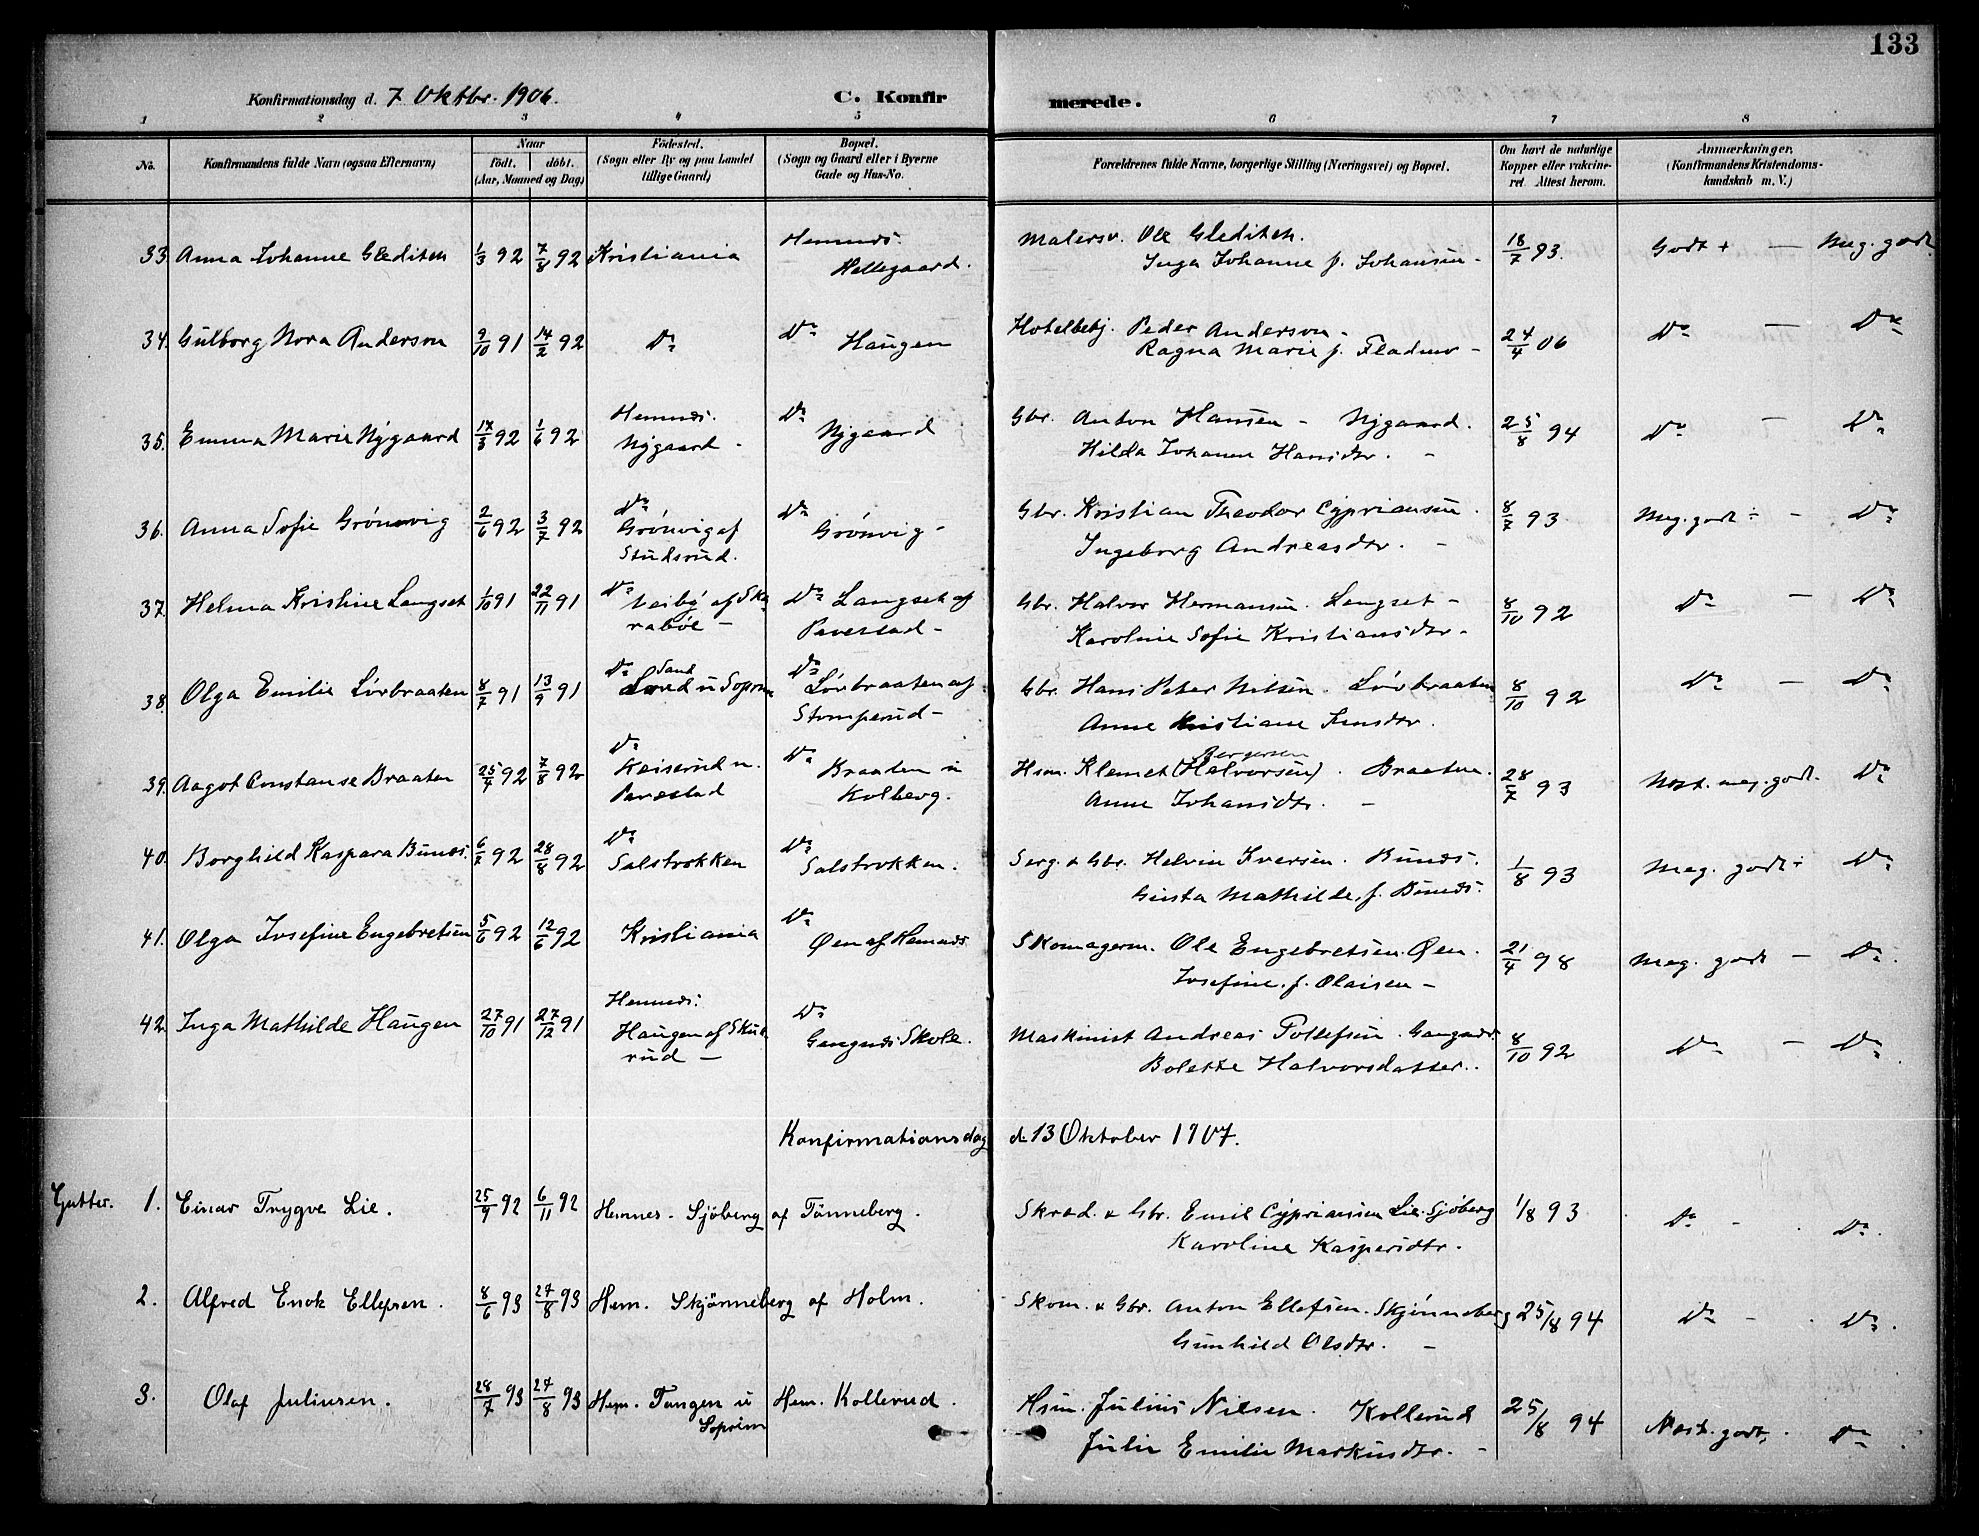 133
Konfirmationsdag d. 7 Oktbr. 1906. C. Konfirmerede.
1 2 3 4 5 6 7 8
No. Konfirmandens fulde Navn (ogsaa Efternavn) Naar født. døbt. (Aar, Maaned og Dag) Fødested. (Sogn eller By og paa Landet tillige Gaard) Bopæl. (Sogn og Gaard eller i Byerne Gade og Hus-No. Forældrenes fulde Navne, borgerlige Stilling (Næringsvei) og Bopæl. Om havt de naturlige Kopper eller vaccineret. Attest herom. Anmærkninger. (Konfirmandens Kristendomskundskab m. V.)
33 Anna Johanne Gleditsch 1/3 92 7/8 92 Kristiania Hemnes. Hellegaard. Malersv. Ole Gleditsch. Inga Johanne f. Johansen - 18/7 93. Godt + — Meg. godt
34. Gulborg Nora Anderson 9/10 91 14/2 92 Do Do Haugen Hotelbetj. Peder Anderson - Ragna Marie f. 24/4 06 Do — Do
35. Emma Marie Nygaard 17/3 92 1/6 92 Hemnes. Nygaard - Do Nygaard Gbr. Anton Hansen - Nygaard. Hilda Johanne Hansdtr. - 25/8 94 Do — Do
36. Anna Sofie Grönvig 2/6 92 3/7 92 Do Grönvig af Studsrud. Do Grönvig - Gbr. Kristian Theodor Cypriansen. Ingeborg Andreasdtr. - 8/7 93 Meg. godt ÷ - Do
37. Helma Kristine Langset 1/10 91 22/11 91 Do Veiby af Skaraböl - Do Langset af Paverstad - Gbr. Halvor Hermansen. Langset - Karoline Sofie Kristiansdtr. 8/10 92 Do — Do
38. Olga Emilie Lövbraaten 8/7 91 13/9 91 Do Sand u Soprim Do Lövbraaten af Stomperud - Gbr. Hans Peter Nilsen. Lövbraaten Anne Kristiane Jensdtr. 8/10 92 Do — Do
39. Aagot Constanse Braaten 25/4 92 7/8 92 Do Keiserud u. Paverstad Do Braaten u Kolberg. Hsm. Klemet (Halvorsen) Borgersen. Braaten. Anne Johansdtr. - 28/7 93 Nost. meg. godt. Do
40. Borghild Kaspara Bunes. 6/7 92 28/8 92 Do Salstrokken Do Salstrokken. Serg. & Gbr. Helvin Iversen. Bunes. Gusta Mathilde, f. Bunes. 1/8 93 Meg. godt ÷ Do
41. Olga Josefine Engebretsen 5/6 92 12/6 92 Kristiania Do Øen af Hemnes Skomagerm. Ole Engebretsen. Øen. Josefine, f. Olaisen - 21/4 98 Meg. godt — Do
42. Inga Mathilde Haugen 27/10 91 27/12 91 Hemnes: Haugen af Skubrud — Do Gangnes Skole. Maskinist Andreas Tollefsen. Gangnes. Bolette Halvorsdatter. 8/10 92 Do — Do
Konfirmationsdag d. 13 Oktober 1907.
Gutter. 1. Einar Trygve Lie. 25/9 92 6/11 92 Hemnes. Sjöberg af Tönneberg. Skræd. & Gbr. Emil Cypriansen Lie. Sjöberg Karoline Kaspersdtr. 1/8 93 Do - Do.
2. Alfred Enok Ellefsen. 8/6 93 27/8 93 Hem. Skjönneberg af Holm. Skom. & Gbr. Anton Ellefsen. Skjönneberg Gunhild Olsdtr. - 25/8 94 Do - Do.
3. Olaf Juliusen. 28/7 93 27/8 93 Hem. Tangen u Soprim Hem. Kollerud. Hsm. Julius Nilsen. Kollerud Julie Emilie Markusdtr. - 25/8 94 Nost. godt, Do